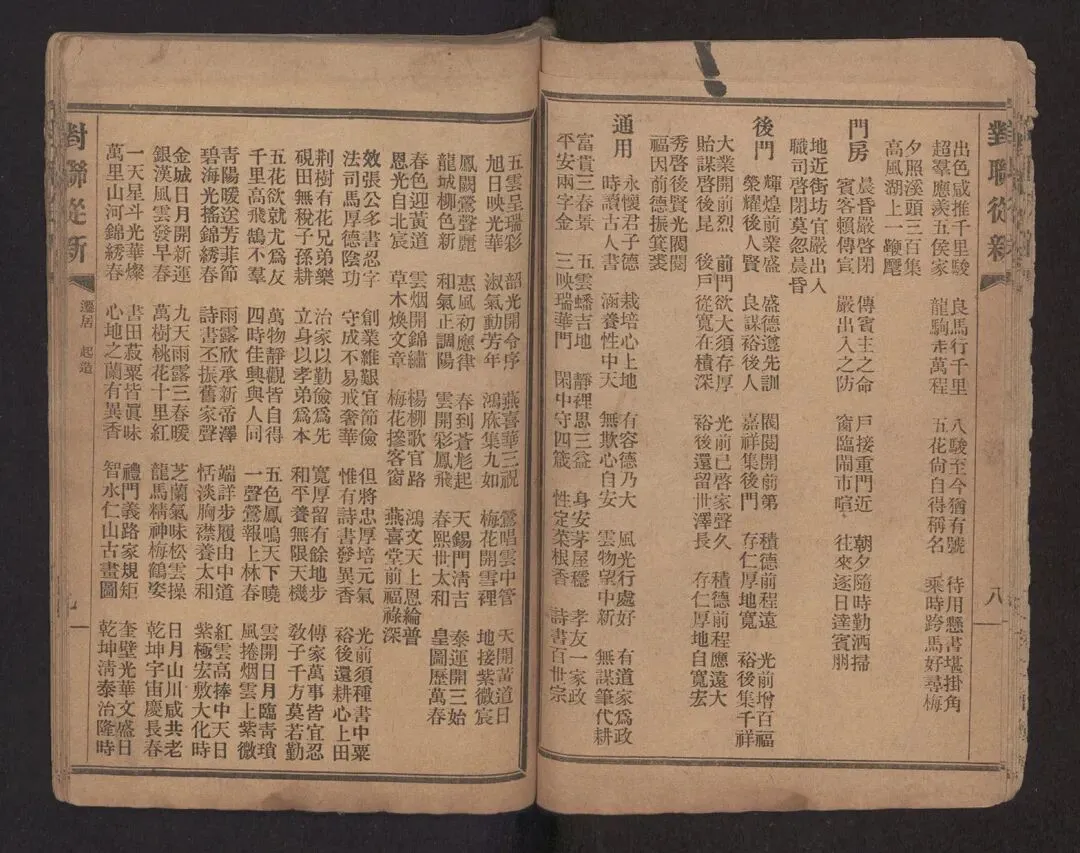 對聯從新
八
出色咸推千里駿　良馬行千里　八駿至今猶有號　待用懸書堪掛角
超羣應羨五侯家　龍駒走萬程　五花尙自得稱名　乘時跨馬好尋梅
夕照溪頭三百集
高風湖上一鞭
門房
晨昏嚴啓閉　傳賓主之命　戶接重門近　朝夕隨時勤洒掃
賓客賴傳宣　嚴出入之防　窗臨鬧市喧　往來逐日達賓朋
地近街坊宜嚴出入
職司啓閉莫忽晨昏
後門
輝煌前業盛　盛德遵先訓　閥閱開前第　積德前程遠　光前增百福
榮耀後人賢　良謀裕後人　嘉祥集後門　存仁厚地寬　裕後集千祥
大業開前烈　前門欲大須存厚　光前已啓家聲久　積德前程應遠大
貽謀啓後昆　後戶從寬在積深　裕後還留世澤長　存仁厚地自寬宏
秀啓後賢光閥閱
福因前德振箕裘
通用
永懷君子德　栽培心上地　有容德乃大　風光行處好　有道家爲政
時讀古人書　涵養性中天　無欺心自安　雲物望中新　無謀筆代耕
富貴三春景　五雲蟠吉地　靜裡思三益　身安茅屋穩　孝友一家政
平安兩字金　三映瑞華門　閑中守四箴　性定菜根香　詩書百世宗
五雲呈瑞彩　韶光開令序　燕喜華三祝　鶯唱雲中管　天開黃道日
旭日映光華　淑氣動芳年　鴻庥集九如　梅花開雪裡　地接紫微宸
鳳闕鶯聲麗　惠風初應律　春到蒼彪起　天錫門淸吉　泰運開三始
龍城柳色新　和氣正調陽　雲開彩鳳飛　春熙世太和　皇圖歷萬春
春色迎黃道　雲烟開錦繡　楊柳歌官路　鴻文天上恩綸普
恩光自北宸　草木煥文章　梅花摻客窗　燕喜堂前福祿深
效張公多書忍字　創業維艱宜節儉　但將忠厚培元氣　光前須種書中粟
法司馬厚德陰功　守成不易戒奢華　惟有詩書發異香　裕後還耕心上田
荆樹有花兄弟樂　治家以勤儉爲先　寬厚留有餘地步　傳家萬事皆宜忍
硯田無稅子孫耕　立身以孝弟爲本　和平養無限天機　敎子千方莫若勤
五花欲就尤爲友　萬物靜觀皆自得　五色鳳鳴天下曉　雲開日月臨靑瑣
千里高飛鵠不羣　四時佳興與人同　一聲鶯報上林春　風捲烟雲上紫微
靑陽暖送芳菲節　雨露欣承新帝澤　端詳步履由中道　紅雲高捧中天日
碧海光搖錦綉春　詩書丕振舊家聲　恬淡胸襟養太和　紫極宏敷大化時
金城日月開新運　九天雨露三春暖　芝蘭氣味松雲操　日月山川咸共老
銀漢風雲發早春　萬樹桃花十里紅　龍馬精神梅鶴姿　乾坤宇宙慶長春
一天星斗光華燦　書田菽粟皆眞味　禮門義路家規矩　奎壁光華文盛日
萬里山河錦綉春　心地之蘭有異香　智水仁山古畫圖　乾坤淸泰治隆時
對聯從新
遷居　起造
九